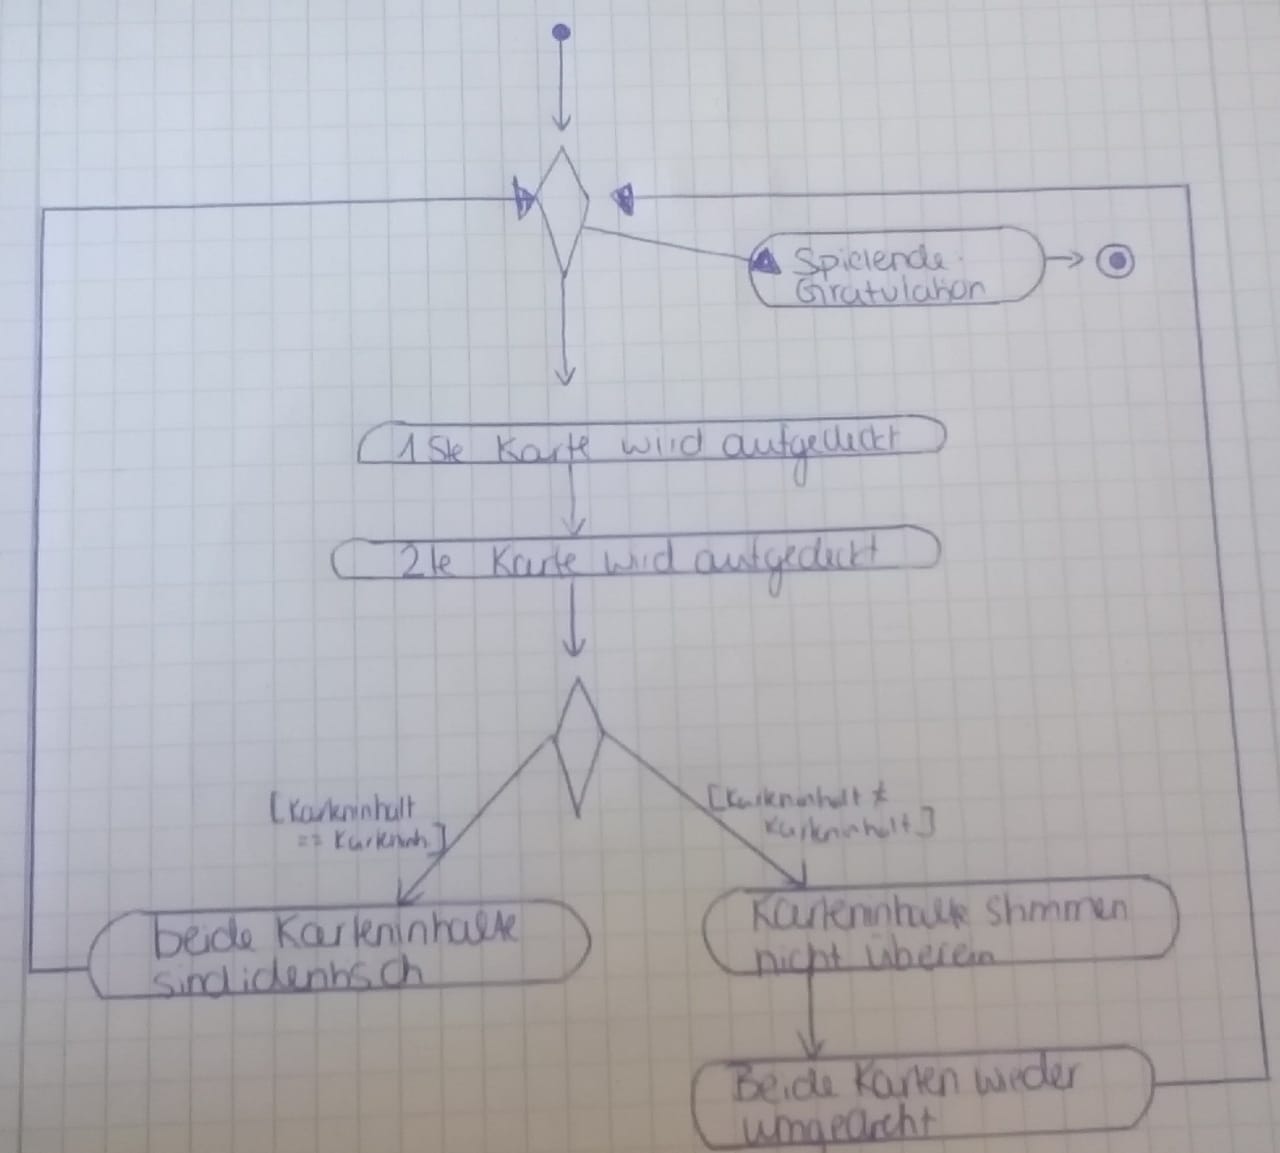 Spielende
Giratulation
1 Ste Karte wird aufgedeckt
2te Karte wird aufgedeckt
[Karteninhalt
== Karteninh.]
[Karteninhalt ≠
Karteninhalt]
beide Karteninhalte
sind identisch
Karteninhalte stimmen
nicht überein
Beide Karten wieder
umgedreht